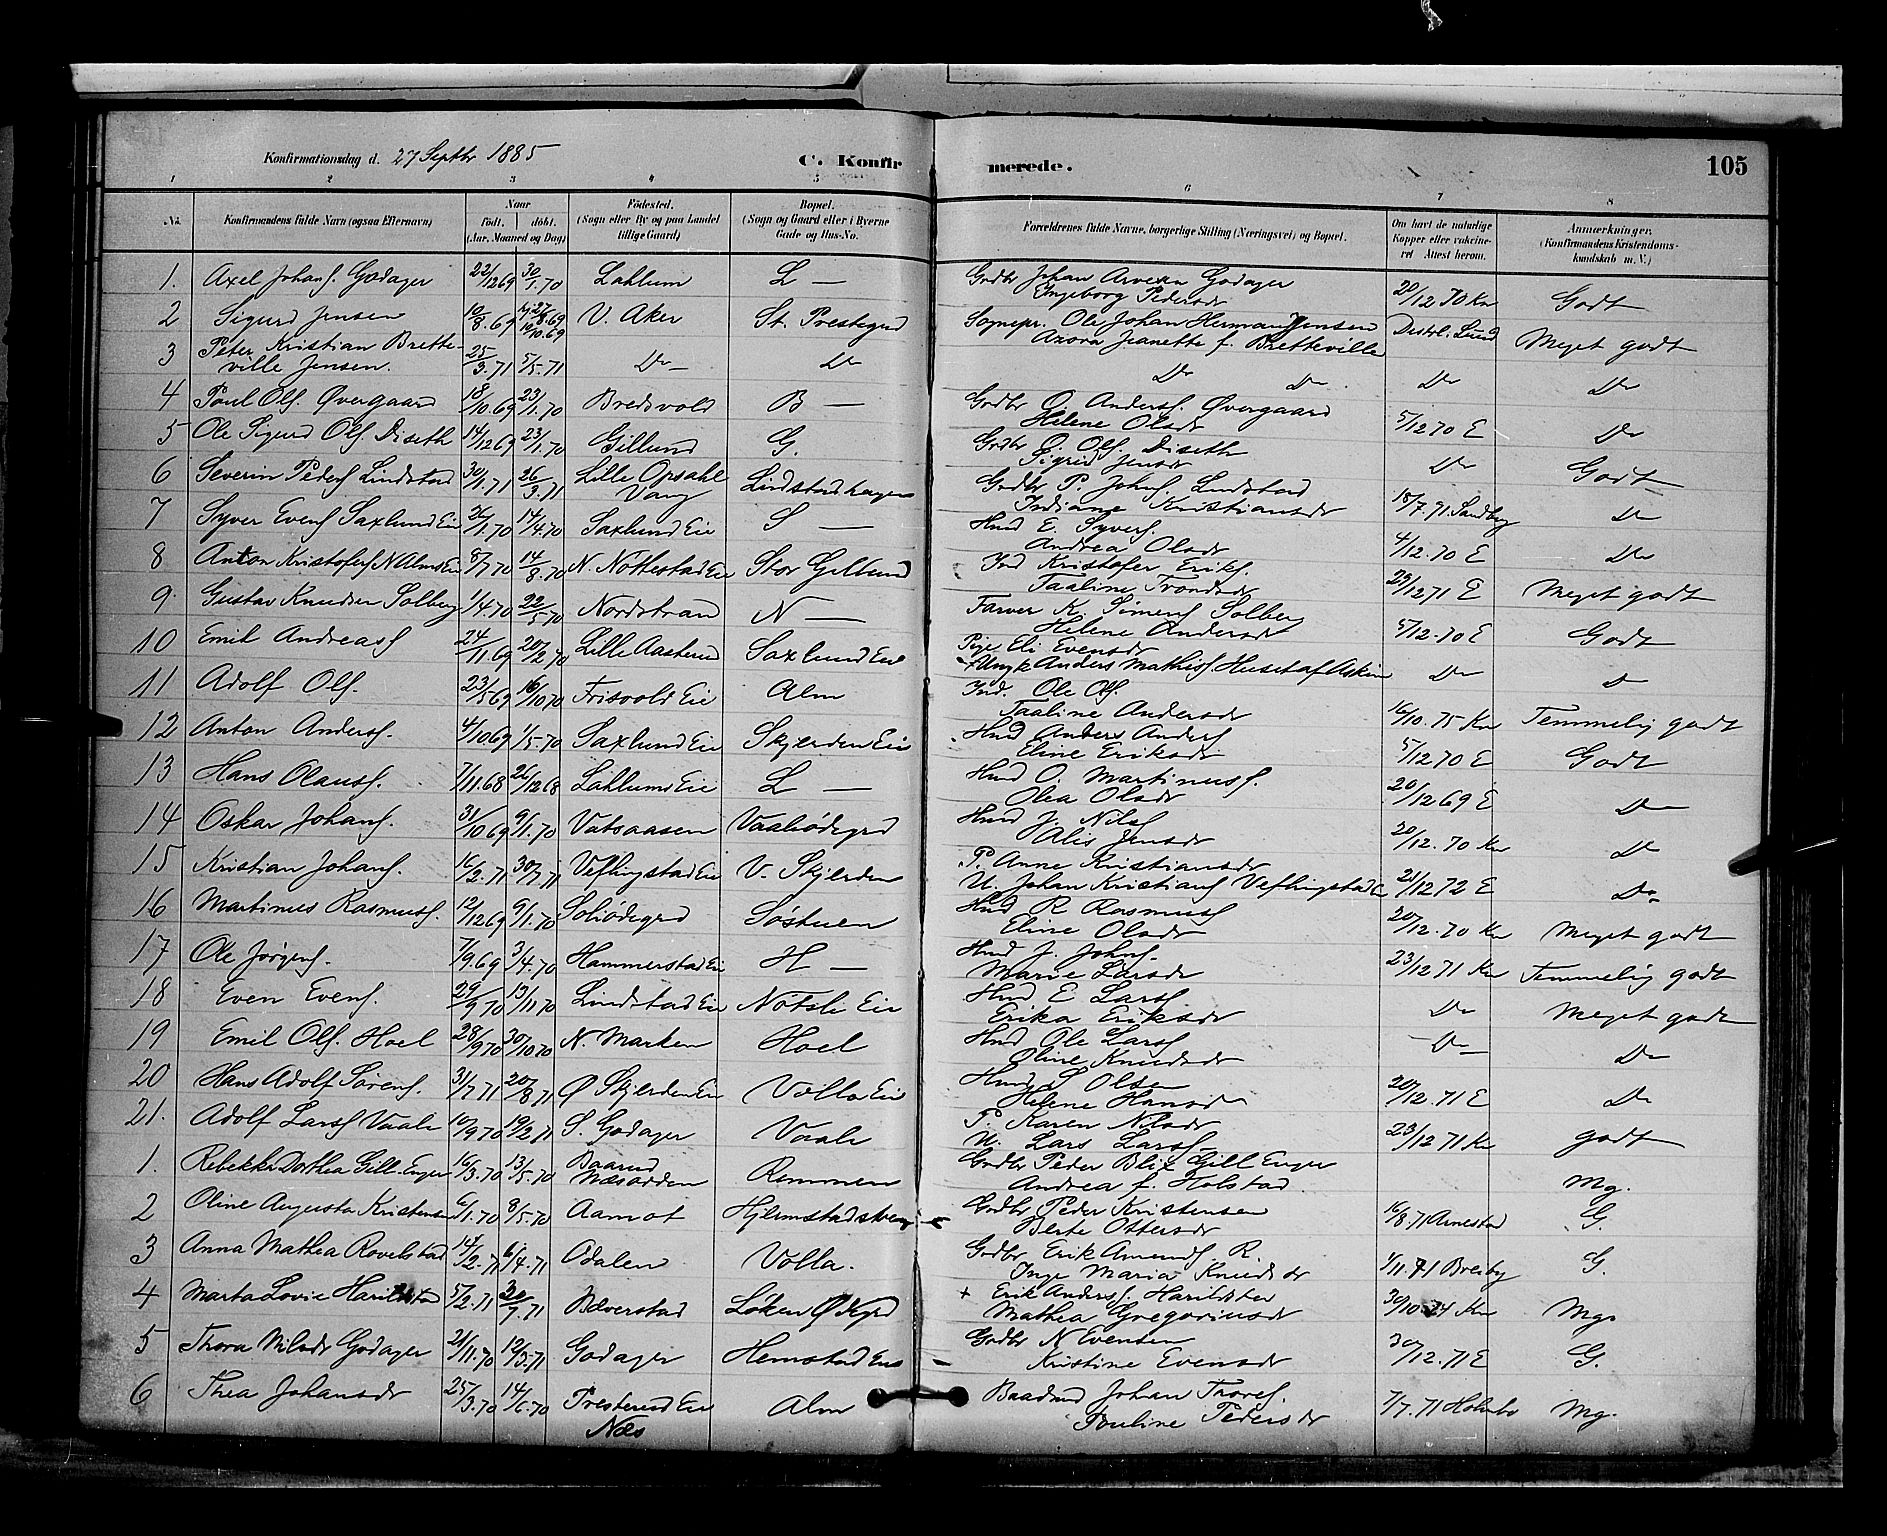 Konfirmationsdag d. 27 Septbr 1885 C. Konfir merede. 105
1 2 3 4 5 6 7 8
No. Konfirmandens fulde Navn (ogsaa Efternavn) Naar født. døbt. (Aar, Maaned og Dag) Fødested. (Sogn eller By og paa Landet tillige Gaard) Bopæl. (Sogn og Gaard eller i Byerne Gade og Hus-No. Forældrenes fulde Navne, borgerlige Stilling (Næringsvei) og Bopæl. Om havt de naturlige Kopper eller vaccineret Attest herom. Anmærkninger. (Konfirmandens Kristendomskundskab m. V.)
1. Axel Johans. Godager 22/12 69 30/1.70 Lahlum L — Grdbr Johan Arvesen Godager Ingeborg Pedersdr 20/12 70 Kr Godt
2 Sigurd Jensen 10/8.69 10/10.69 V. Aker St. Prestegrd Sognepr. Ole Johan Herman Jensen Azora Jeanette f. Bretteville Distrl. Lund Meget godt
3 Peter Kristian Bretteville Jensen. 25/3.71 5/5.71 Do Do Do Do Do Do
4 Poul Ols. Øvergaard 18/10.69 23/1.70 Bredsvold B — Grdbr O. Anders. Øvergaard Helene Olsdr 5/12 70 E Do
5 Ole Sigurd Ols. Diseth 14/12 69 23/1.70 Gillund G. Grdbr O. Ols. Diseth Sigrid Jensdr Do Godt
6 Severin Peders Lindstad 30/1.71 26/3.71 Lille Opsahl Vang Lindstadhagen Grdbr P. Johns. Lindstad Indiane Kristiansdr 18/7.71. Sandby Do
7 Syver Evens Saxlund Eie 26/1.70 14/4.70 Saxlund Eie S — Hmd E. Syvers. Andrea Olsdr 4/12.70 E Do
8 Anton Kristofers N Alm Eie 8/7 70 14/8.70 N. Nøttestad Eie Stor Gillund Ind Kristofer Eriks. Taaline Trondsdr 29/12 71 E Meget godt
9. Gustav Knudsen Solberg 1/4.70 22/5.70 Nordstrand N — Farver K. Simens Solberg Helene Andersdr 5/12.70 E Godt
10 Emil Andreass 24/11.69 20/2.70 Lille Aasterud Saxlund Eie Pige Eli Evensdr Ungk Anders Mathiss Huset af Askim Do Do
11 Adolf Ols. 23/5 69 16/10.70 Frisvold Eie Alm Ind. Ole Ols. Taaline Andersdr 16/10.75 Kr Temmelig godt
12 Anton Anders. 4/10.69 1/5.70 Saxlund Eie Skjerden Eie Hmd Anders Anders Eline Eriksdr 5/12 70 E Godt
13 Hans Olaus. 7/11.68 26/12 68 Lahlums Eie L — Hmd O. Martinus. Olea Olsdr 20/12 69 E Do
14 Oskar Johans. 31/10 69 9/1.70 Vatsaasen Vaaliødegrd Hmd J. Nils Alis Jensdr 20/12.70 Kr Do
15 Kristian Johans. 16/2.71 30/7.71 Veflingstad Eie V. Skjerden P. Anne Kristiansdr U. Johan Kristians Veflingstad E 21/12 72 E Do
16 Martinus Rasmus. 12/12 69 9/1.70 Soliødegrd Søstuen Hmd R Rasmus Eline Olsdr 20/12.70 Kr Meget godt
17 Ole Jørgens. 7/9.69 3/4.70 Hammerstad Eie H — Hmd J. Johns. Marie Larsdr 23/12 71 Kr Temmelig godt
18 Even Evens. 29/9 70 13/11 70 Lindstad Eie Nøtsli Eie Hmd E Lars Erika Eriksdr Do Meget godt
19 Emil Ols. Hoel 28/9 70 30/10.70 N. Marken Hoel Hmd Ole Lars Oline Knudsdr Do Do
20 Hans Adolf Sørens. 31/7.71 20/8 71 Ø Skjerden Eie Volla Eie Hmd S Olsen Helene Hansdr 20/12.71 E Do
21. Adolf Lars Vaale 10/9 70 19/2 71 S. Godager Vaale P. Karen Nilsdr U. Lars Lars 23/12 71 Kr godt
1. Rebekka Dorthea Gill-Enger 16/3.70 13/5.70 Næsodden Remmen Grdbr Peder Blix Gill Enger Andrea f. Holstad. Mg.
2 Oline Augusta Kristensen 6/1.70 8/5.70 Aamot Hjelmstadstuen Grdbr Peder Kristensen Berte Ottersdr 16/8.71 Arnestad G.
3 Anna Mathea Rovelstad 14/2.71 6/4.71 Odalen Volla. Grdbr Erik Amunds. R. Inge Maria Knudsdr 1/11.71 Breiby G.
4 Marta Lovie Harildstad 5/2.71 30/7.71 Bæverstad Løken Ødegrd + Erik Anders. Harildstad Mathea Gregoriusdr 30/10.74 Kr Mg.
5 Thora Nilsdr Godager 21/11.70 12/3.71 Godager Hemstad Eie Grdbr N Evensen Kristine Evensdr 30/12.71 E G.
6 Thea Johansdr 25/3.70 14/6.70 Presterud Eie Næs Alm Baadmd Johan Tores. Pouline Pedersdr 7/7.71 Holmbo Mg.